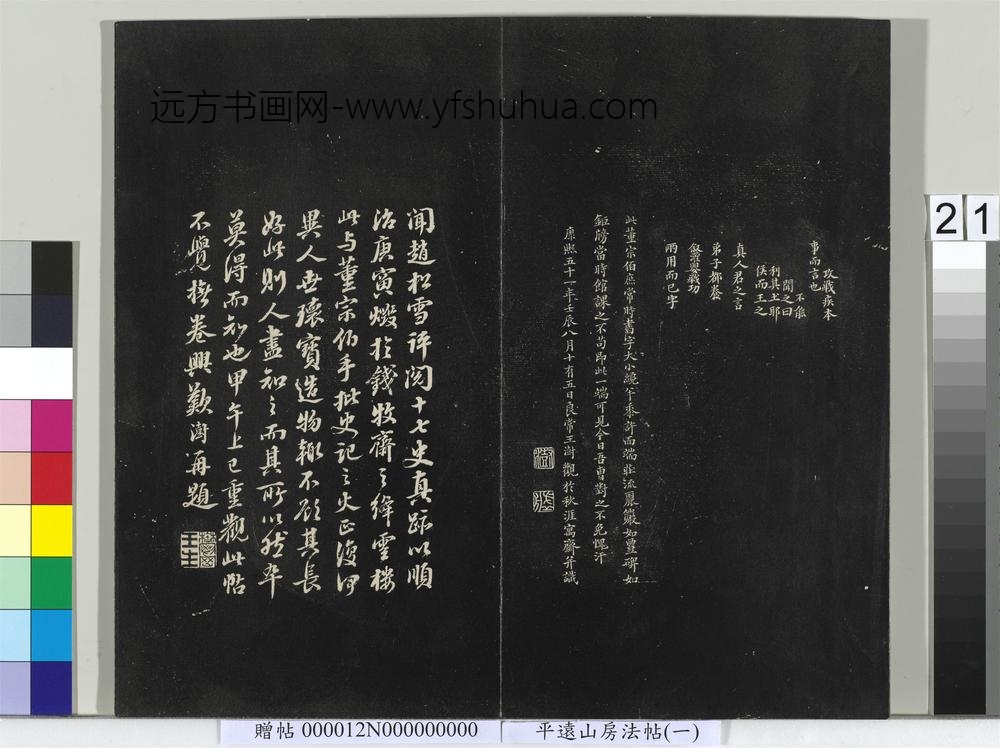 远方书画网-www.yfshuhua.com
21
攻戰疾本
事而言也
不能
聞之曰
利其土耶
侯而王之
真人君之言
弟子都養
叙嘗嬰戰功
兩用而已字
此董宗伯庶常時書字大小纔午黍許而端莊流麗儼如豐碑如
鉅牓當時館課之不苟即此一端可見今日吾曹對之不免愧汗
康熙五十一年壬辰八月十有五日良常王澍觀於秋涯寓齋并識
聞趙松雪評閱十七史真跡以順
治庚寅燬於錢牧齋之絳雲樓
此与董宗伯手批史記之火正復何
異人世瓌寶造物輙不欲其長
好此則人盡知之而其所以然卒
莫得而知也甲午上巳重觀此帖
不覺撫卷興歎澍再題
贈帖 000012N000000000
平遠山房法帖(一)